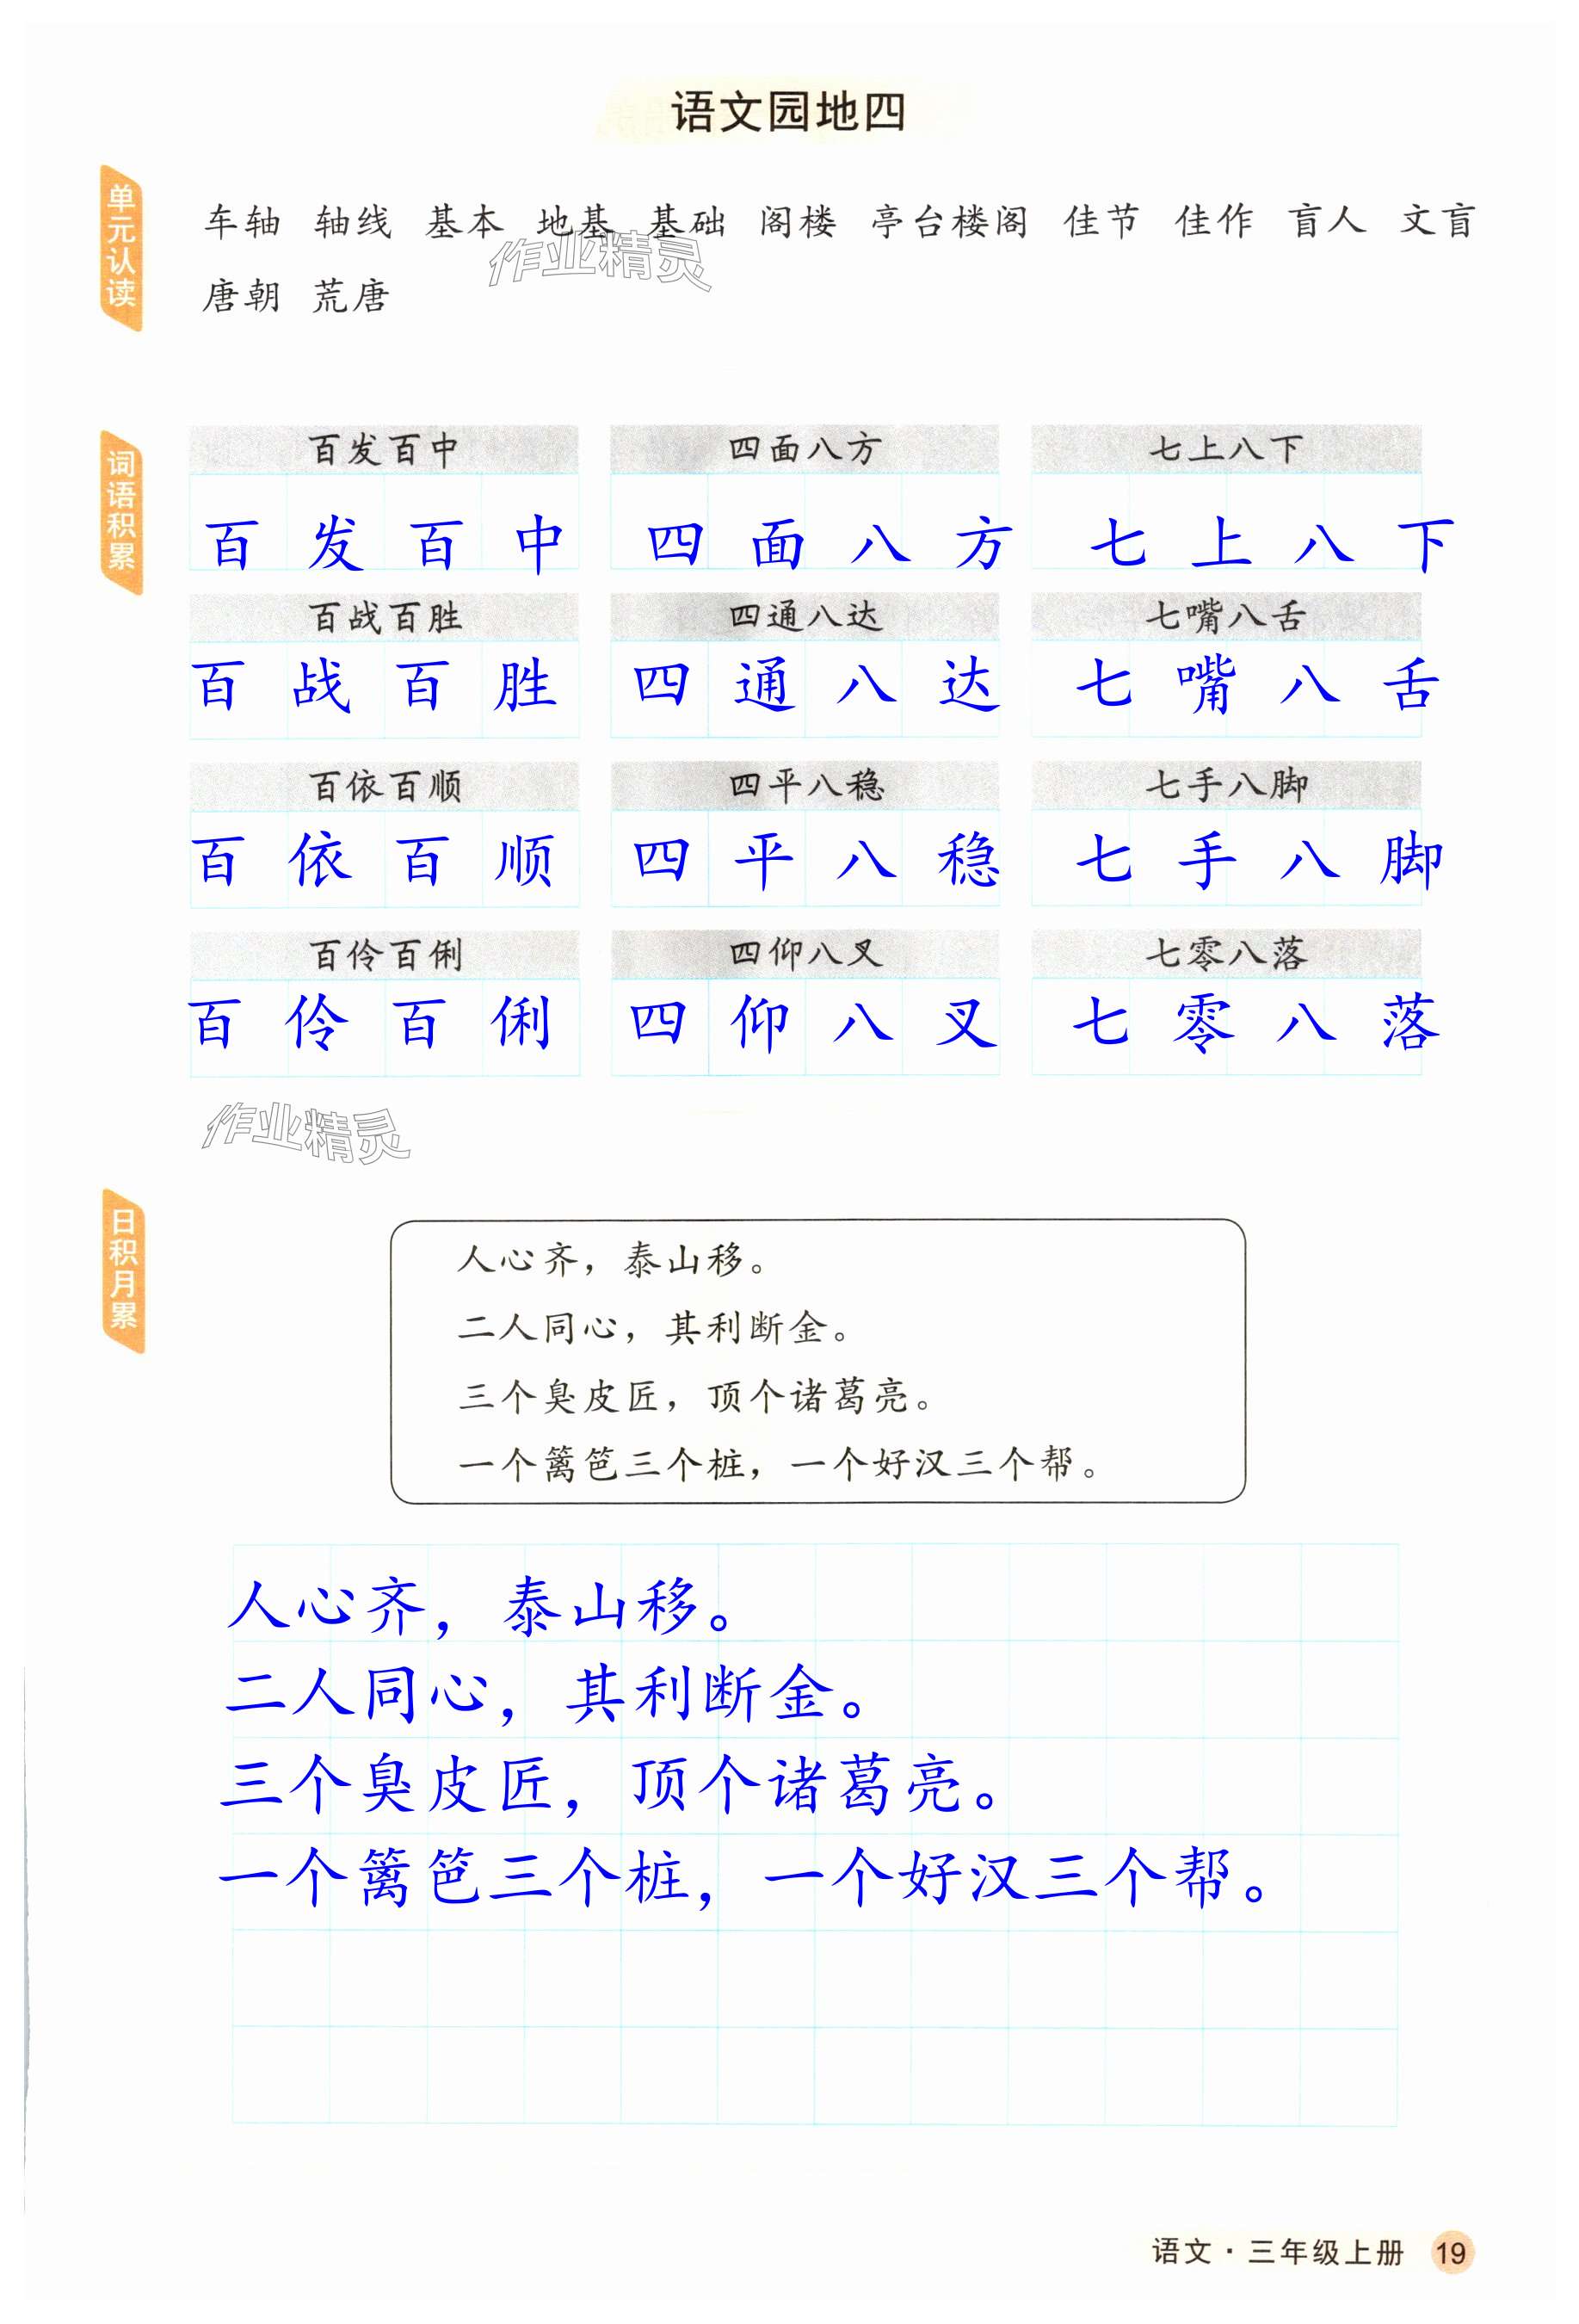 语文园地四
单元认读
车轴 轴线 基本 地基 基础 阁楼 亭台楼阁 佳节 佳作 盲人 文盲
唐朝 荒唐
作业精灵
词语积累
百发百中 四面八方 七上八下
百 发 百 中 四 面 八 方 七 上 八 下
百战百胜 四通八达 七嘴八舌
百 战 百 胜 四 通 八 达 七 嘴 八 舌
百依百顺 四平八稳 七手八脚
百 依 百 顺 四 平 八 稳 七 手 八 脚
百伶百俐 四仰八叉 七零八落
百 伶 百 俐 四 仰 八 叉 七 零 八 落
作业精灵
日积月累
人心齐，泰山移。
二人同心，其利断金。
三个臭皮匠，顶个诸葛亮。
一个篱笆三个桩，一个好汉三个帮。
人心齐，泰山移。
二人同心，其利断金。
三个臭皮匠，顶个诸葛亮。
一个篱笆三个桩，一个好汉三个帮。
语文·三年级上册 19